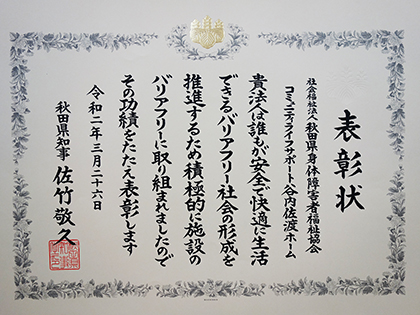 表彰状
社会福祉法人 秋田県身体障害者福祉協会
コミュニティライフサポート八谷内佐渡ホーム
貴法人は誰もが安全で快適に生活
できるバリアフリー社会の形成を
推進するため積極的に施設の
バリアフリーに取り組まれましたので
その功績をたたえ表彰します
令和二年三月二十六日
秋田県知事 佐竹敬久